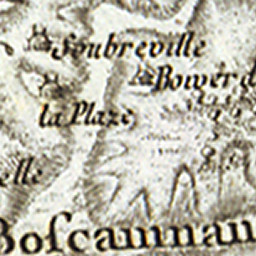 Soubreville
Bower d
la Plaze
elle
Boſcamnan